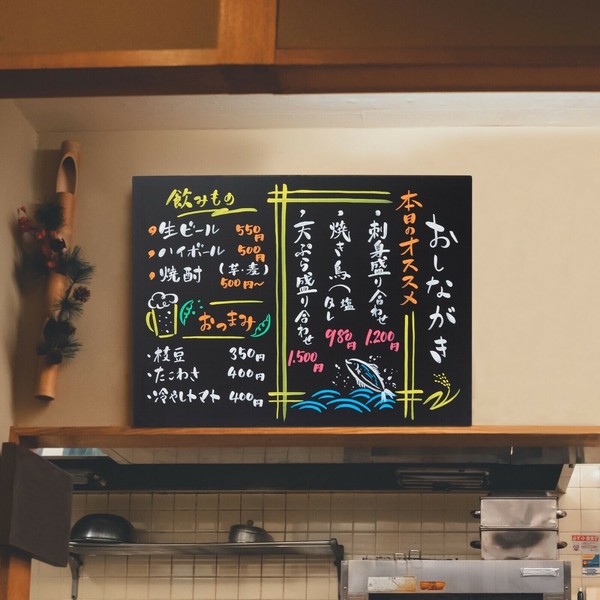 おしながき
本日のオススメ
・刺身盛り合わせ
1.200円
・焼き鳥(塩
980円
・天ぷら盛り合わせ
1.500円
飲みもの
・生ビール 550円
・ハイボール 500円
・焼酎(芋・麦)
500円〜
おつまみ
・枝豆 350円
・たこわさ 400円
・冷やしトマト 400円